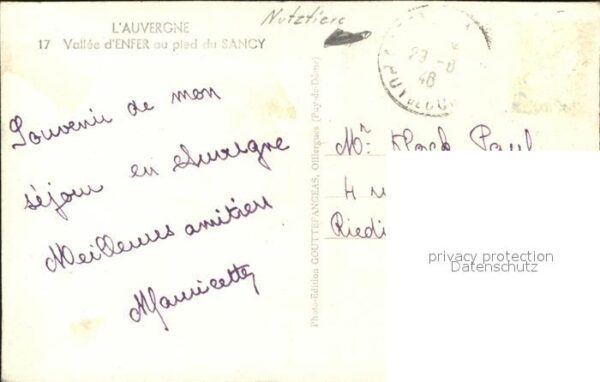 L'AUVERGNE
17 Vallée d'ENFER au pied du SANCY
Nutztiere
29 -8
48
PUY DE DOME
Souvenir de mon
séjour en Auvergne
Meilleures amitiés
Mauricette
Photo-Edition GOUTTEFANGEAS, Olliergues (Puy-de-Dôme)
Mr Paul
4
Riedi
privacy protection
Datenschutz